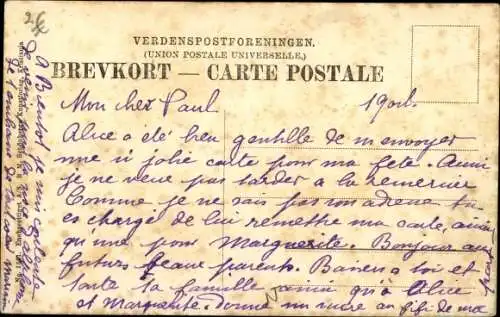 26
VERDENSPOSTFORENINGEN.
(UNION POSTALE UNIVERSELLE,)
BREVKORT — CARTE POSTALE
Mon cher Paul
19 oct.
Alice a été bien gentille de m'envoyer
une si jolie carte pour ma fête. Aussi
je ne veux pas tarder à la remercier
Comme je ne sais pas son adresse tu
es chargé de lui remettre ma carte, ainsi
qu'une pour Marguerite. Bonjour aux
futurs beaux parents. Baisers à toi et
toute la famille ainsi qu'à Alice
et Marguerite. Donne un sucre au fifi de ma
part
A Bientôt je suis contente
de venir
Je t'embrasse de tout coeur